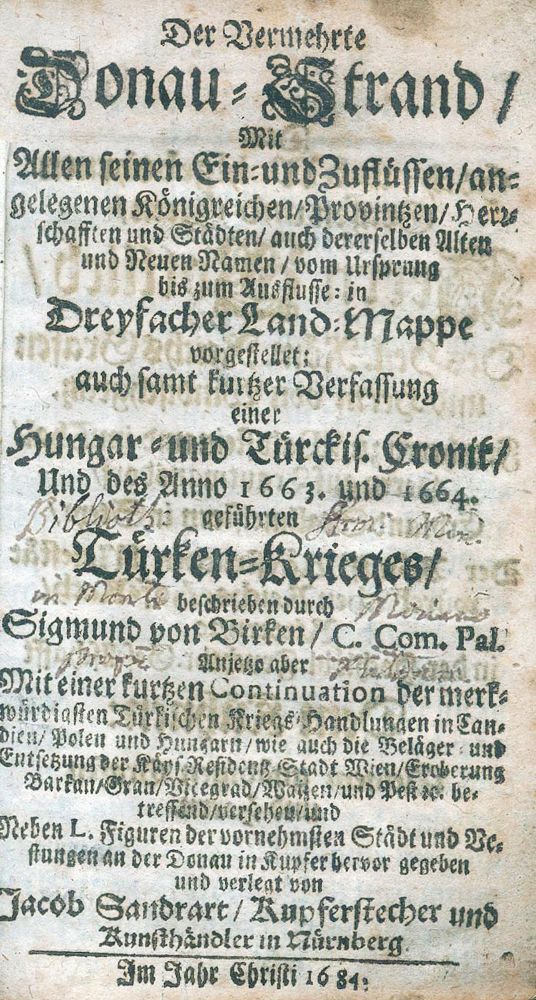 Der Vermehrte
Donau-Strand/
Mit
Allen seinen Ein-und Zuflüssen/an-
gelegenen Königreichen/Provintzen/Herr-
schafften und Städten/auch dererselben Alten
und Neuen Namen/vom Ursprung
bis zum Ausflusse: in
Dreyfacher Land-Mappe
vorgestellet:
auch samt kurtzer Verfassung
einer
Hungar-und Türckis. Cronik/
Und des Anno 1663. und 1664.
geführten
Türken-Krieges/
beschrieben durch
Sigmund von Birken/ C. Com. Pal.
Anjetzo aber
Mit einer kurtzen Continuation der merk-
würdigsten Türkischen Kriegs-Handlungen in Can-
dien/Polen und Hungarn/wie auch die Beläger-und
Entsetzung der Käys. Residentz-Stadt Wien/Eroberung
Barkan/Gran/Vicegrad/Waitzen/und Pest ꝛc. be-
treffend/versehen/und
Neben L. Figuren der vornehmsten Städt und Ve-
stungen an der Donau in Kupfer hervor gegeben
und verlegt von
Jacob Sandrart/Kupferstecher und
Kunsthändler in Nürnberg.
Im Jahr Christi 1684.